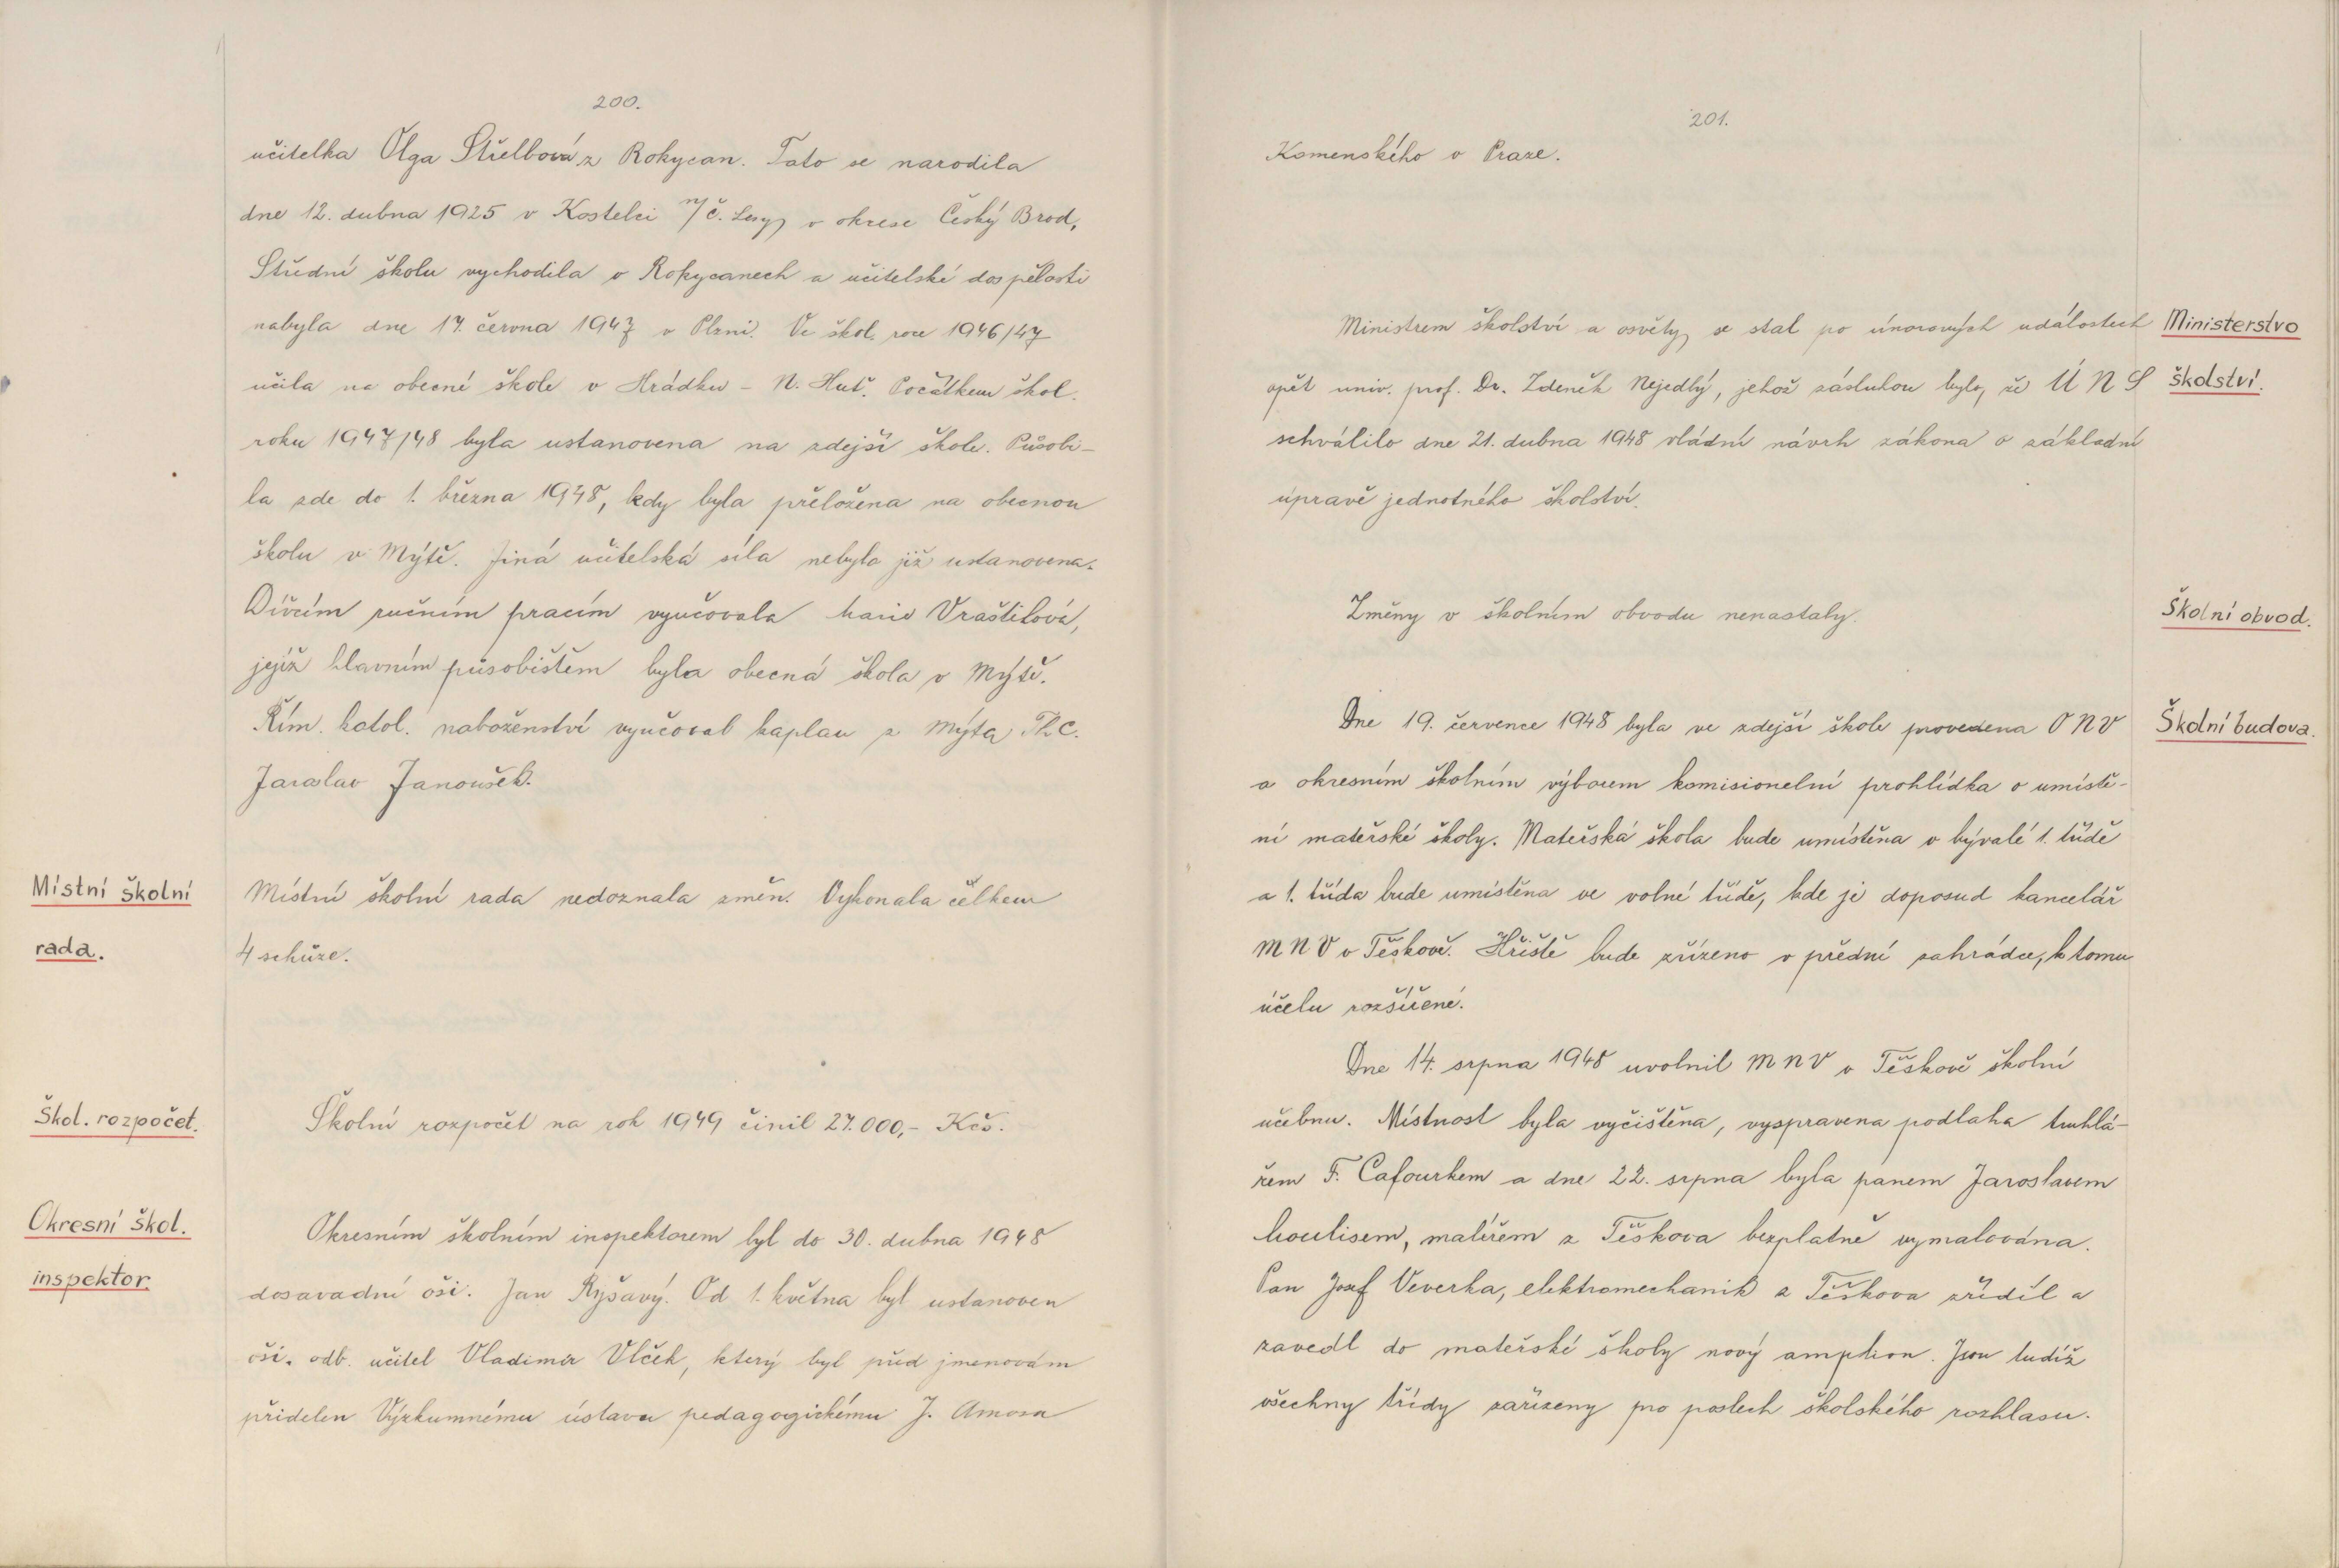 200.
učitelka Olga Střelbová z Rokycan. Tato se narodila
dne 12. dubna 1925 v Kostelci n/Č. Lesy v okrese Český Brod,
Střední školu vychodila v Rokycanech a učitelské dospělosti
nabyla dne 17. června 1947 v Plzni. Ve škol. roce 1946/47
učila na obecné škole v Hrádku - N. Huť. Počátkem škol.
roku 1947/48 byla ustanovena na zdejší škole. Působi-
la zde do 1. března 1948, kdy byla přeložena na obecnou
školu v Mýtě. Jiná učitelská síla nebyla již ustanovena.
Dívčím ručním pracím vyučovala Marie Vraštilová,
jejíž hlavním působištěm byla obecná škola v Mýtě.
Řím. katol. naboženství vyučoval kaplan z Mýta Th.C.
Jaroslav Janoušek.
Místní školní
rada.
Místní školní rada nedoznala změn. Vykonala celkem
4 schůze.
Škol. rozpočet.
Školní rozpočet na rok 1949 činil 27.000,- Kčs.
Okresní škol.
inspektor.
Okresním školním inspektorem byl do 30. dubna 1948
dosavadní oši. Jan Ryšavý. Od 1. května byl ustanoven
oši. odb. učitel Vladimír Vlček, který byl před jmenováním
přidelen Výzkumnému ústavu pedagogickému J. Amosa
201.
Komenského v Praze.
Ministrem školství a osvěty se stal po únorových událostech
opět univ. prof. Dr. Zdeněk Nejedlý, jehož zásluhou bylo, že Ú N S
schválilo dne 21. dubna 1948 vládní návrh zákona o základní
úpravě jednotného školství.
Ministerstvo
školství.
Změny v školním obvodu nenastaly.
Školní obvod.
Dne 19. července 1948 byla ve zdejší škole provedena O N V
a okresním školním výborem komisionelní prohlídka o umístě-
ní mateřské školy. Mateřská škola bude umístěna v bývalé 1. třídě
a 1. třída bude umístěna ve volné třídě, kde je doposud kancelář
M N V v Těškově. Hřiště bude zřízeno v přední zahrádce, k tomu
účelu rozšířené.
Školní budova.
Dne 14. srpna 1948 uvolnil M N V v Těškově školní
učebnu. Místnost byla vyčištěna, vyspravena podlaha truhlá-
řem F. Cafourkem a dne 22. srpna byla panem Jaroslavem
malířem z Těškova bezplatně vymalována.
Pan Josef Veverka, elektromechanik z Těškova zřídil a
zavedl do mateřské školy nový amplion. Jsou tudíž
všechny třídy zařízeny pro poslech školského rozhlasu.